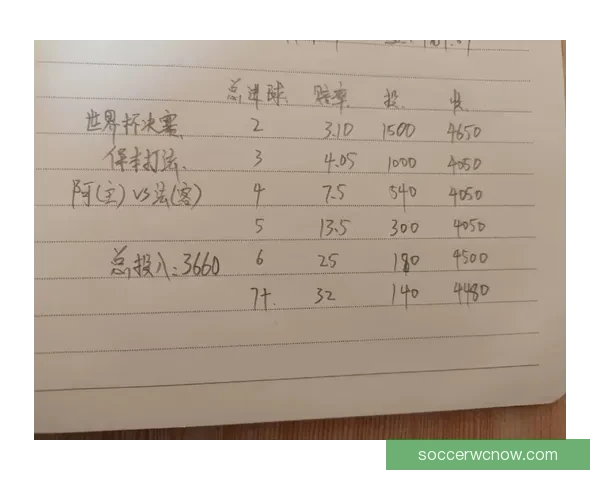 总进球 赔率 投 收
世界杯决赛 2 3.10 1500 4650
保本打法 3 4.05 1000 4050
阿(主) VS 法(客) 4 7.5 540 4050
5 13.5 300 4050
总投入:3660 6 25 180 4500
7+ 32 140 4480
soccerwcnow.com